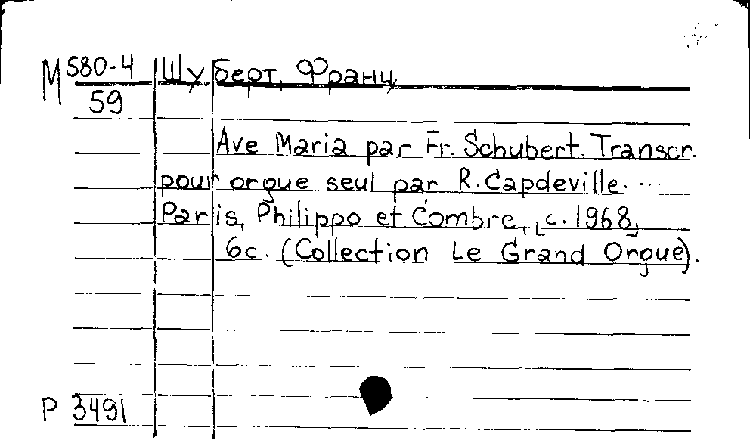 М 580-4 Шуберт, Франц
59
Ave Maria par Fr. Schubert. Transcr.
pour orgue seul par R. Capdeville. ...
Paris, Philippo et Combre, [c. 1968]
6c. (Collection Le Grand Orgue).
Р 3491